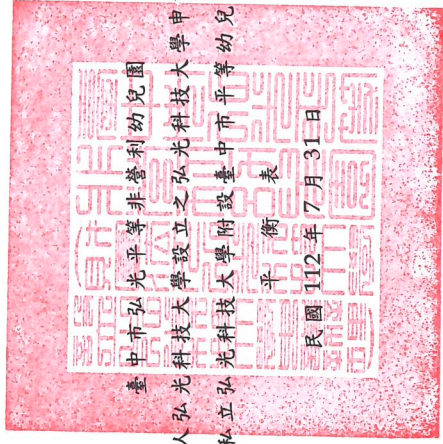 臺中市弘光平等非營利幼兒園
人弘光科技大學設立之弘光科技大學申
私立弘光科技大學附設臺中市平等幼兒
平衡表
民國 112 年 7 月 31 日